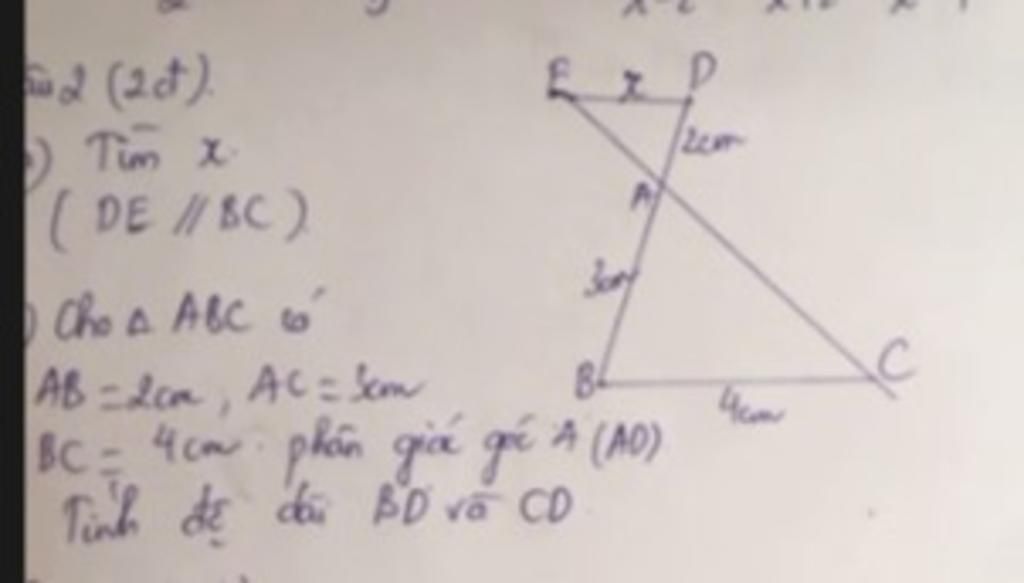 2 (2đ).
) Tìm x.
( DE // BC )
) Cho Δ ABC có
AB = 2cm, AC = 3cm
BC = 4cm. phân giác góc A (AD)
Tính độ dài BD và CD
E x D
2cm
A
3cm
B C
4cm